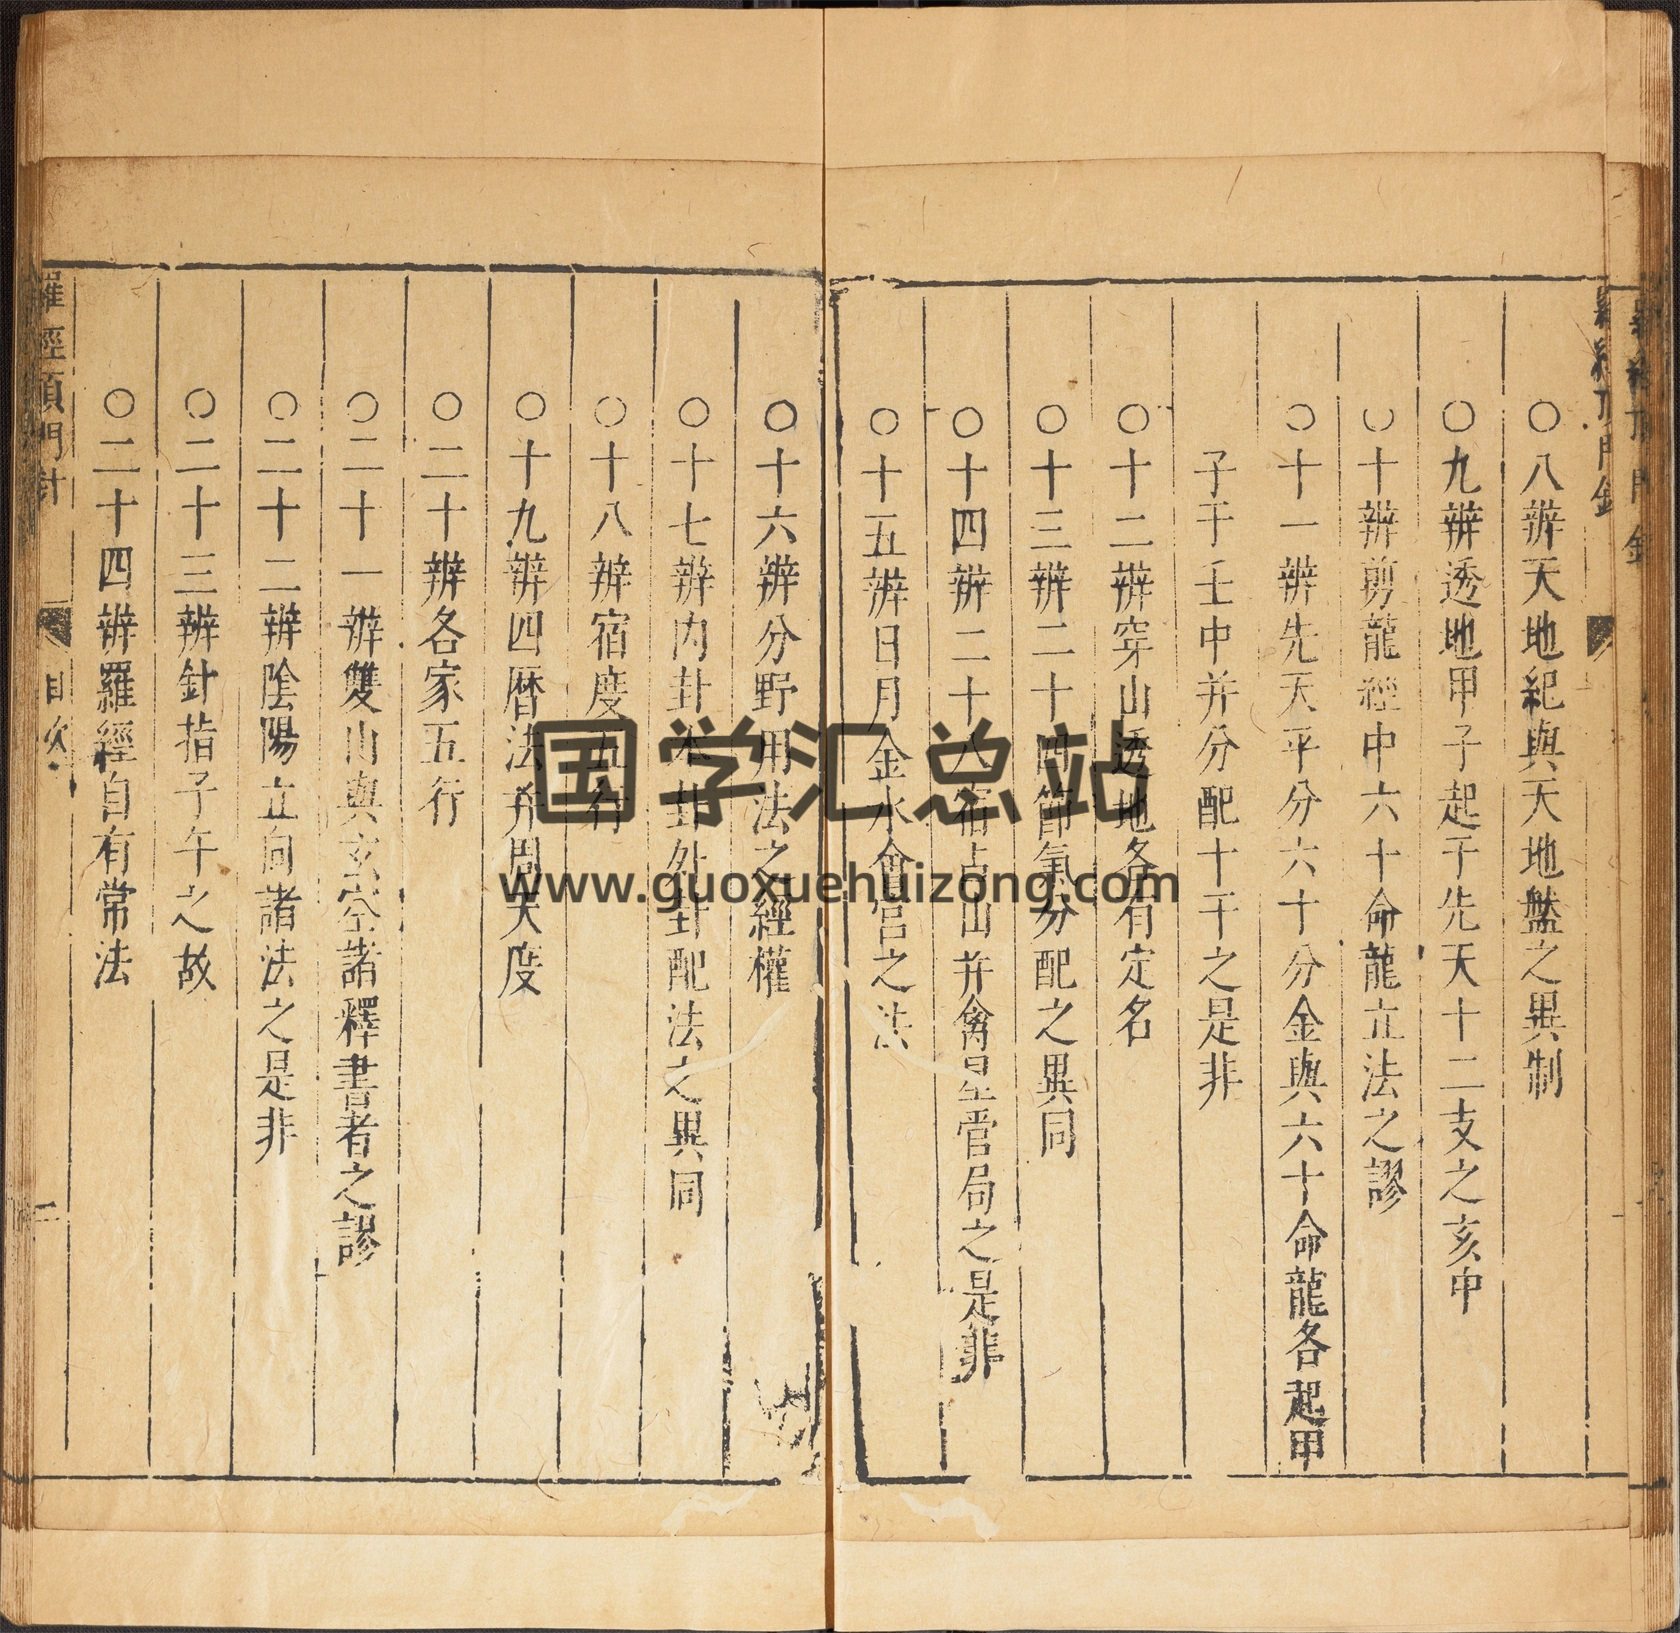 ○八辨天地紀與天地盤之異制
○九辨透地甲子起于先天十二支之亥中
○十辨剪龍經中六十命龍立法之謬
○十一辨先天平分六十分金與六十命龍各起甲
子于壬中并分配十干之是非
○十二辨穿山透地各有定名
○十三辨二十四節氣分配之異同
○十四辨二十八宿占山并禽星管局之是非
○十五辨日月金水會宫之法
○十六辨分野用法之經權
○十七辨内卦本卦外卦配法之異同
○十八辨宿度五行
○十九辨四曆法并周天度
○二十辨各家五行
○二十一辨雙山與玄空諸釋書者之謬
○二十二辨陰陽立向諸法之是非
○二十三辨針指子午之故
○二十四辨羅經自有常法
羅經頂門針
目次
二
国学汇总站
www.guoxuehuizong.com